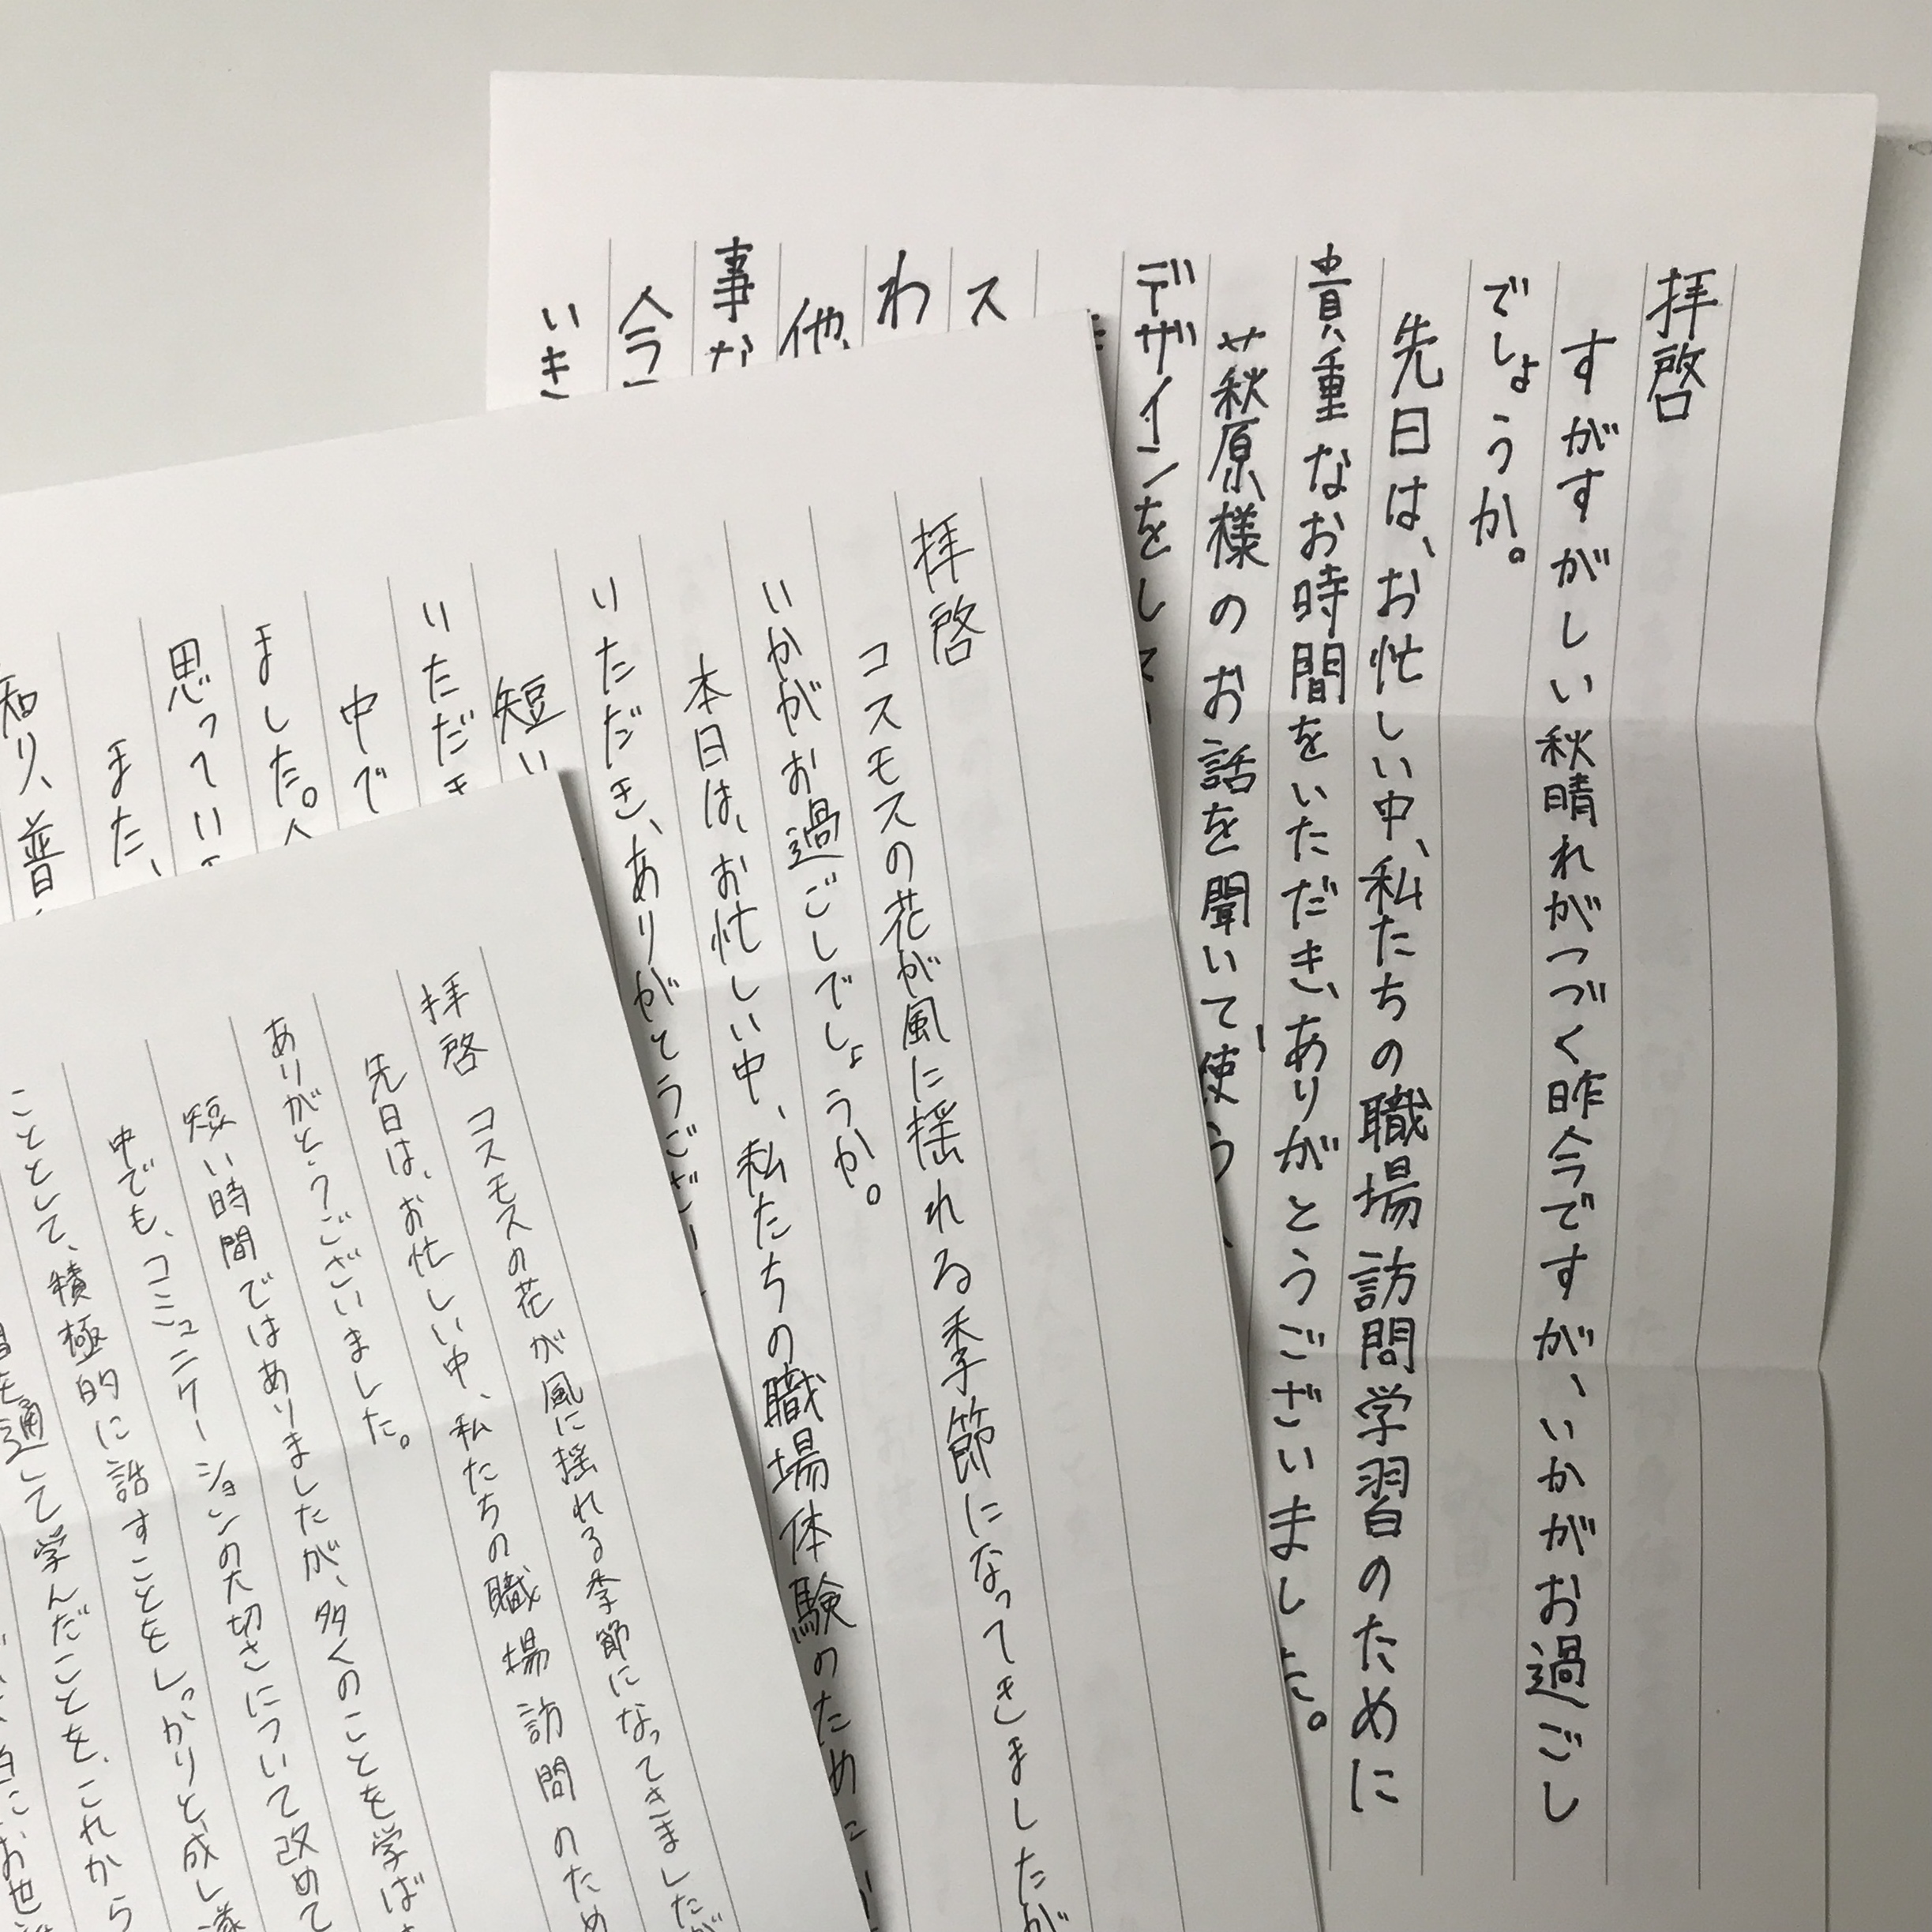 拝啓
すがすがしい秋晴れがつづく昨今ですが、いかがお過ごし
でしょうか。
先日は、お忙しい中、私たちの職場訪問学習のために
貴重なお時間をいただき、ありがとうございました。
萩原様のお話を聞いて、使う
デザインをして
ス
わ
他
事
今
いき
拝啓
コスモスの花が風に揺れる季節になってきましたが
いかがお過ごしでしょうか。
本日は、お忙しい中、私たちの職場体験のため
いただき、ありがとうござ
短い
いただき
中で
ました。
思ってい
また、
知り、普
拝啓 コスモスの花が風に揺れる季節になってきましたが
先日は、お忙しい中、私たちの職場訪問のため
ありがとうございました。
短い時間ではありましたが、多くのことを学ば
中でも、コミュニケーションの大切さについて改めて
こととして、積極的に話すことをしっかりと成し遂
を通して学んだことを、これから
お世